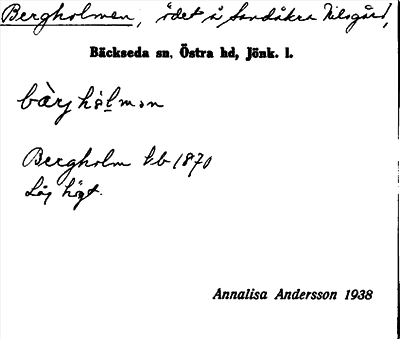 Bergholmen, ödet å Sandåkra Nilsgård,
Bäckseda sn, Östra hd, Jönk. l.
bàrj hòlmən
Bergholm hb 1870
Låg högt.
Annalisa Andersson 1938